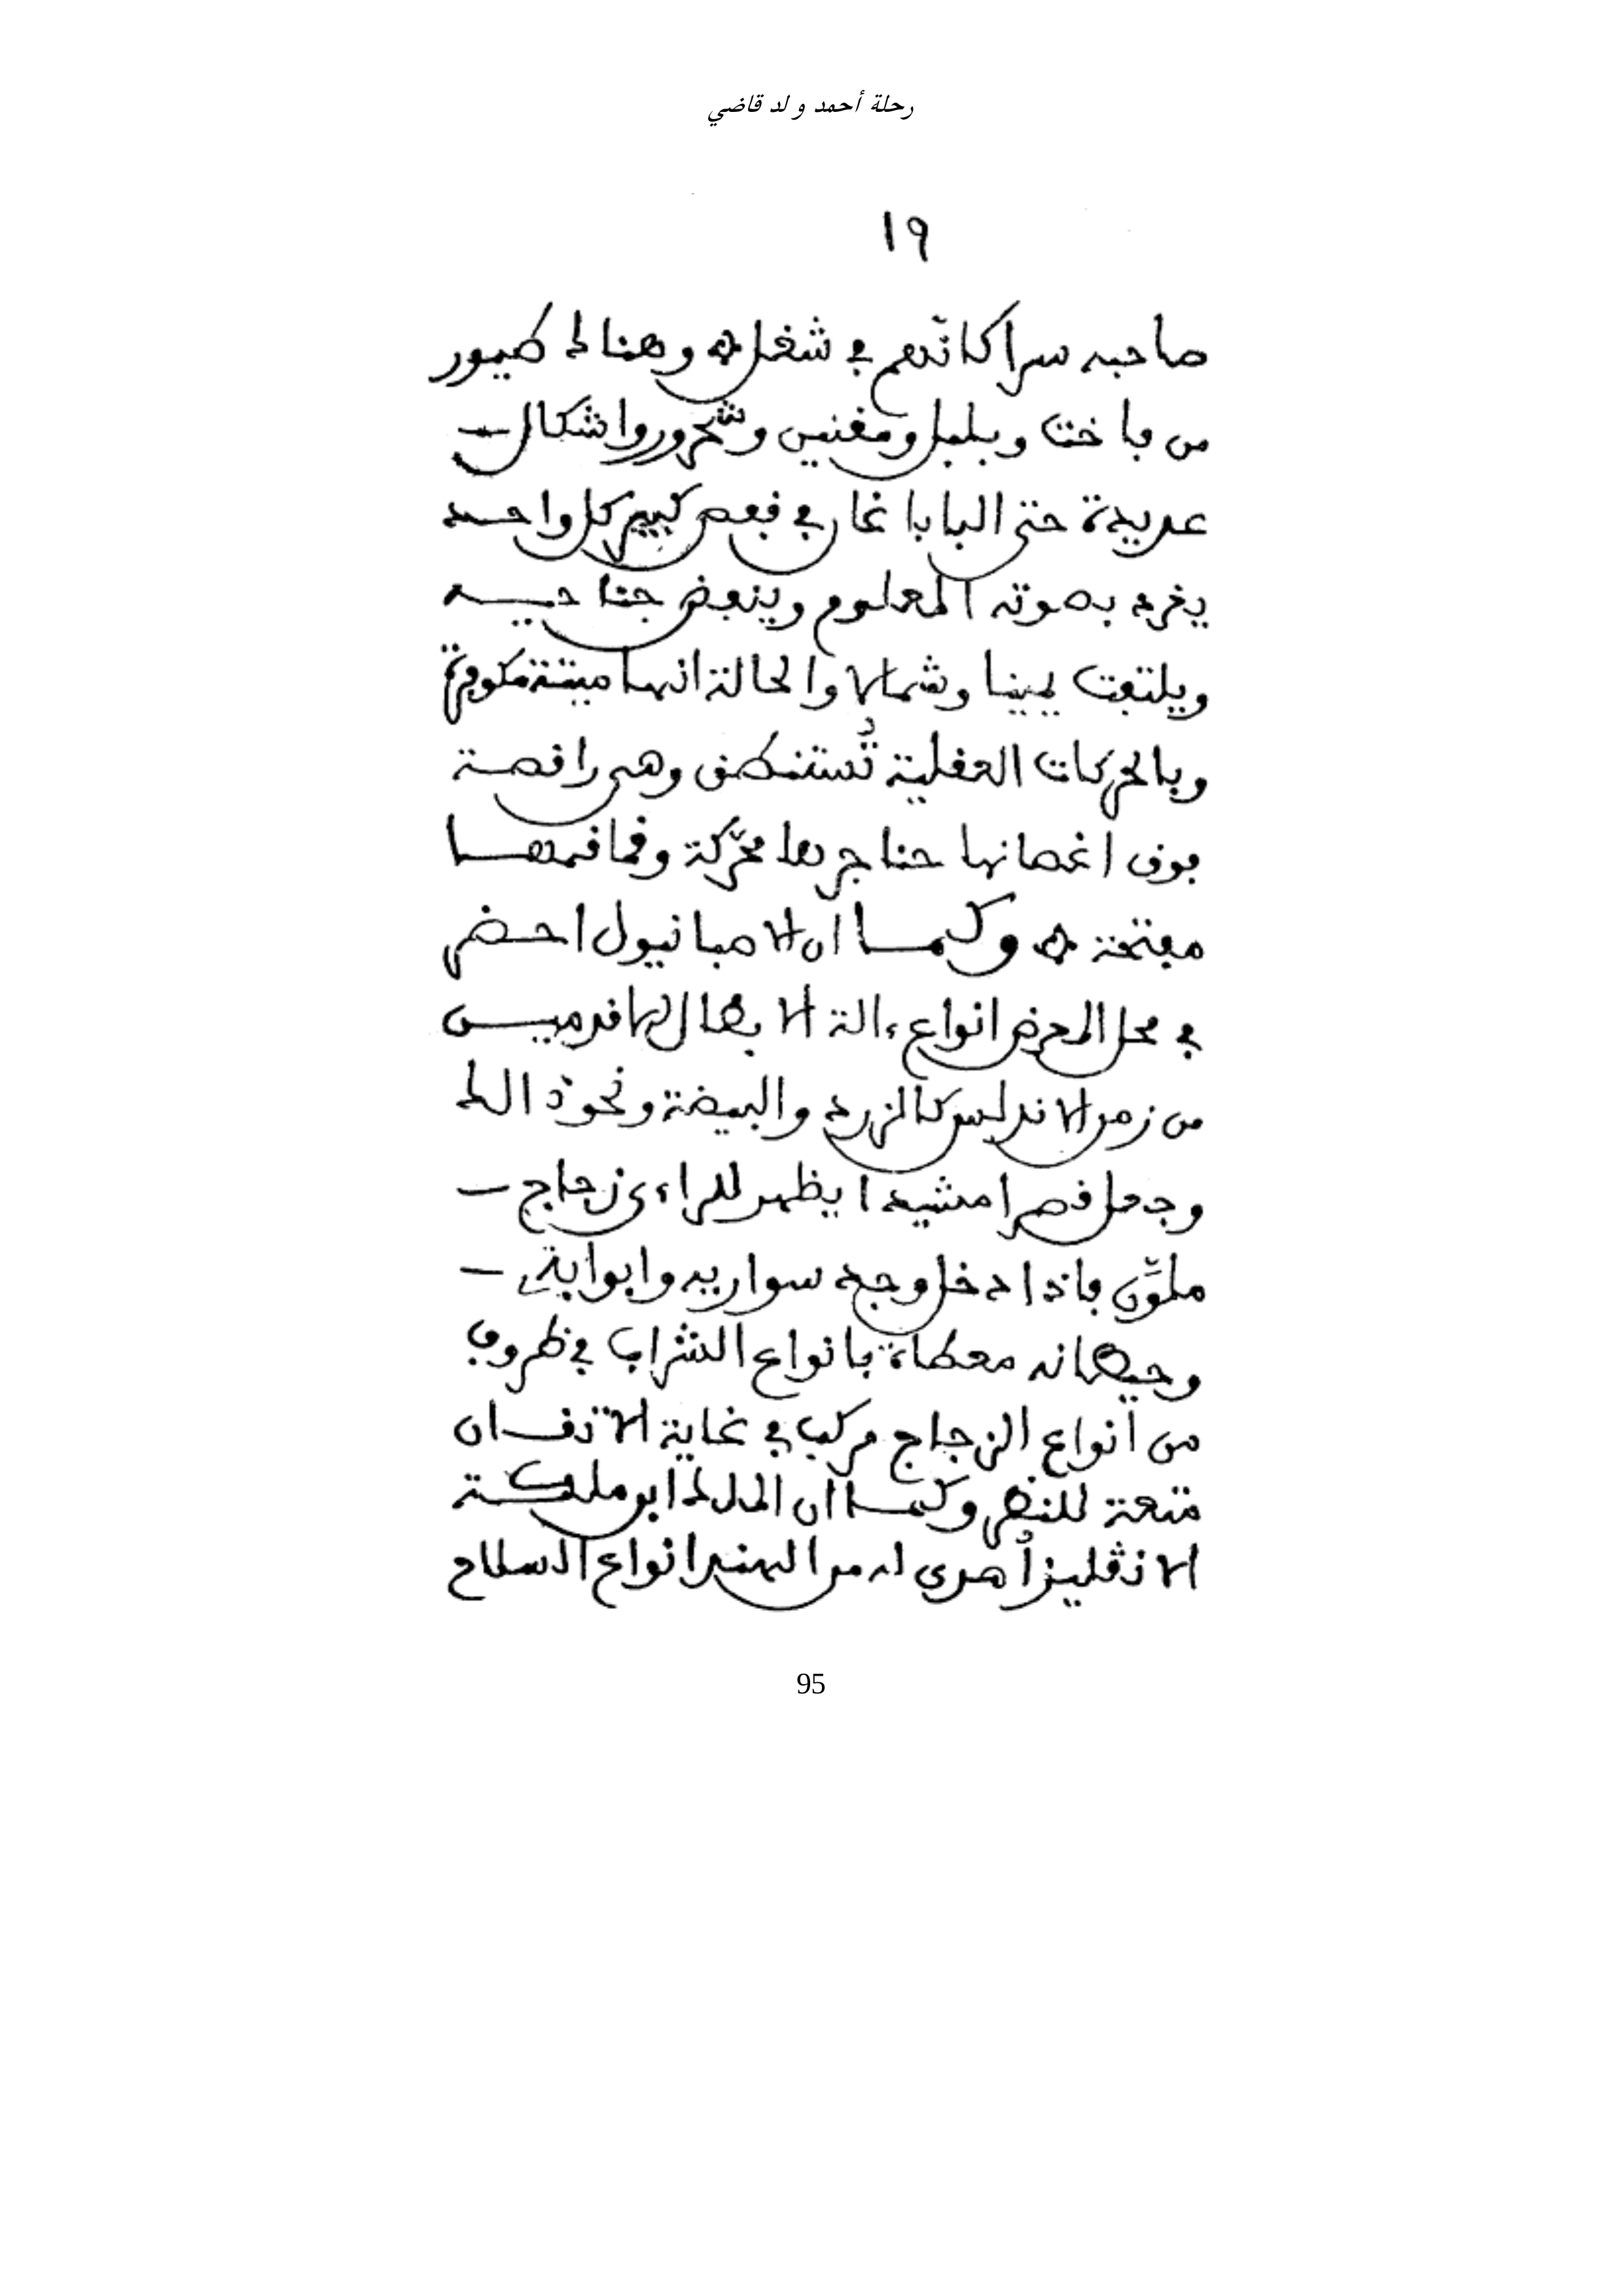 رحلة أحمد ولد قاضي
١٩
صاحبه سرا كانّهم في شغل ۞ وهنالك طيور
من فاخت وبلبل ومغنين وشحرور واشكال
عديدة حتى البابا غا في قفص كبير كل واحد
يغرد بصوته المعلوم وينفض جناحيه
ويلتفت يمينا وشمالا والحالة انها ميتة مكوفة
وبالحركات العقلية تُستنطق وهي راقصة
فوق اغصانها حناجرها محرّكة وفماقمها
مفتحة ۞ وكما ان الاصبانيول احضر
في محل المعرض انواع ءالة الابطال الهافدميين
من زمر الاندلس كالزرد والبيضة ونحو ذالك
وجعل قصرا مشيدا يظهر للراءى زجاج
ملوّن فاذا دخل وجد سواريه وابوابه
وحيطانه معطاة بانواع الشراب في ظروف
من انواع الزجاج مركب في غاية الاتقان
متعة للنظر وكما ان الملك ابو ملكة
الانڨليز أهدى له من الهند انواع السلاح
95